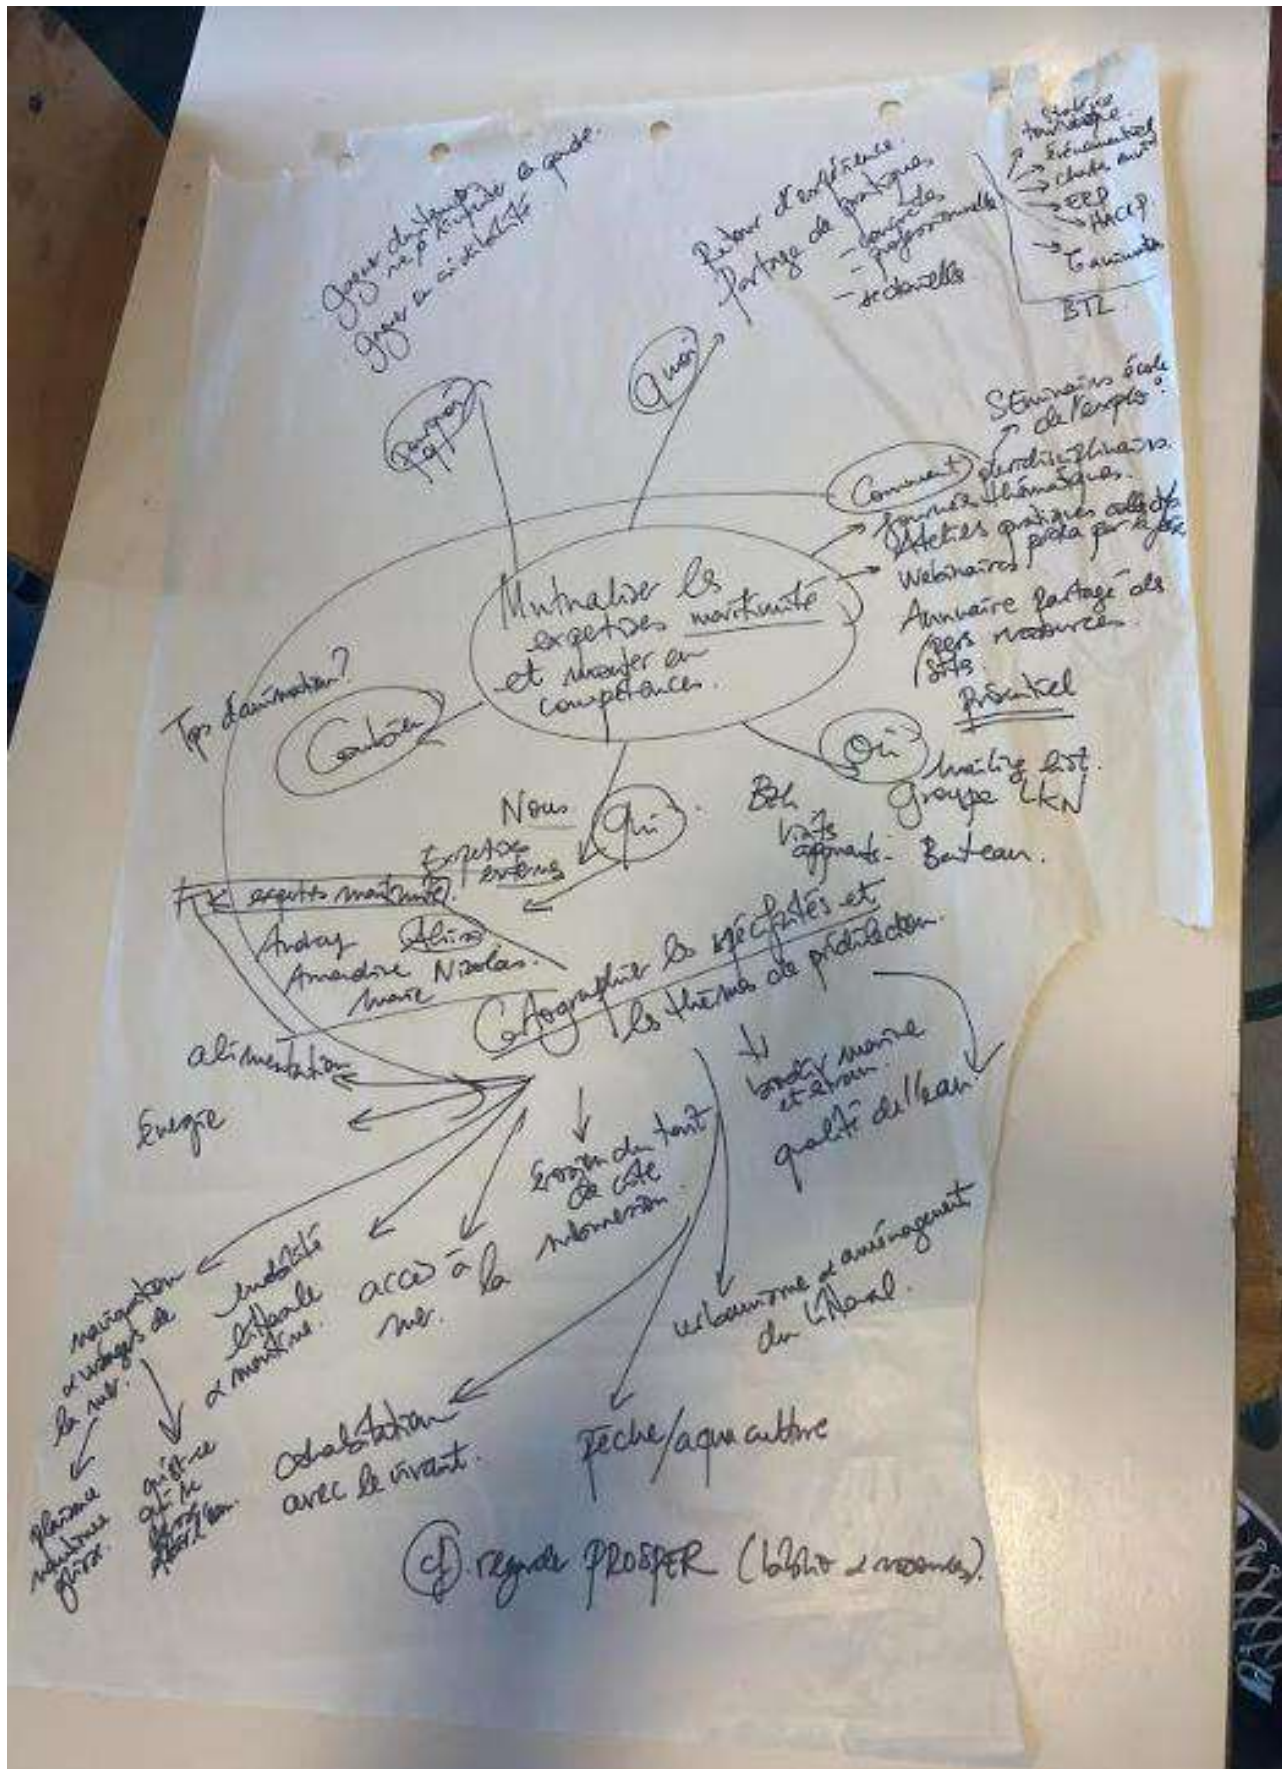 Gagner du temps
ne pas réinventer la poudre.
Gagner en crédibilité.
Pourquoi
Quoi
Retour d'expérience.
Partage de pratiques
- courrides
- professionnelles
- sectorielles
touristique.
Événementiel
ERP
HACCP.
BTL.
Comment
Séminaires école
de l'explo
pluridisciplinaires.
Journées thématiques.
Ateliers pratiques collectifs
Webinaires
Annuaire partagé des
pers ressources.
sites.
Présentiel
Mutualiser les
expertises maritimité
et monter en
compétences.
Tps d'animation?
Combien
Où
Mailing list.
Groupe LKN
Bateau.
Nous
Qui
Expertises
externes
apprenants.
expertes maritimité.
Audrey
Amandine Nicolas.
Marie
Cartographier les spécificités et
les thèmes de prédilection.
alimentation
Énergie
biodiv marine
et estran.
qualité de l'eau
Érosion du trait
de côte
submersion.
navigation
& usages de
la mer.
mobilité
littorale
& maritime.
accès à
la
mer.
urbanisme & aménagement
du littoral.
plaisance
cohabitation
avec le vivant.
pêche/aquaculture
cf. regarde PROSPER (biblio & ressources).